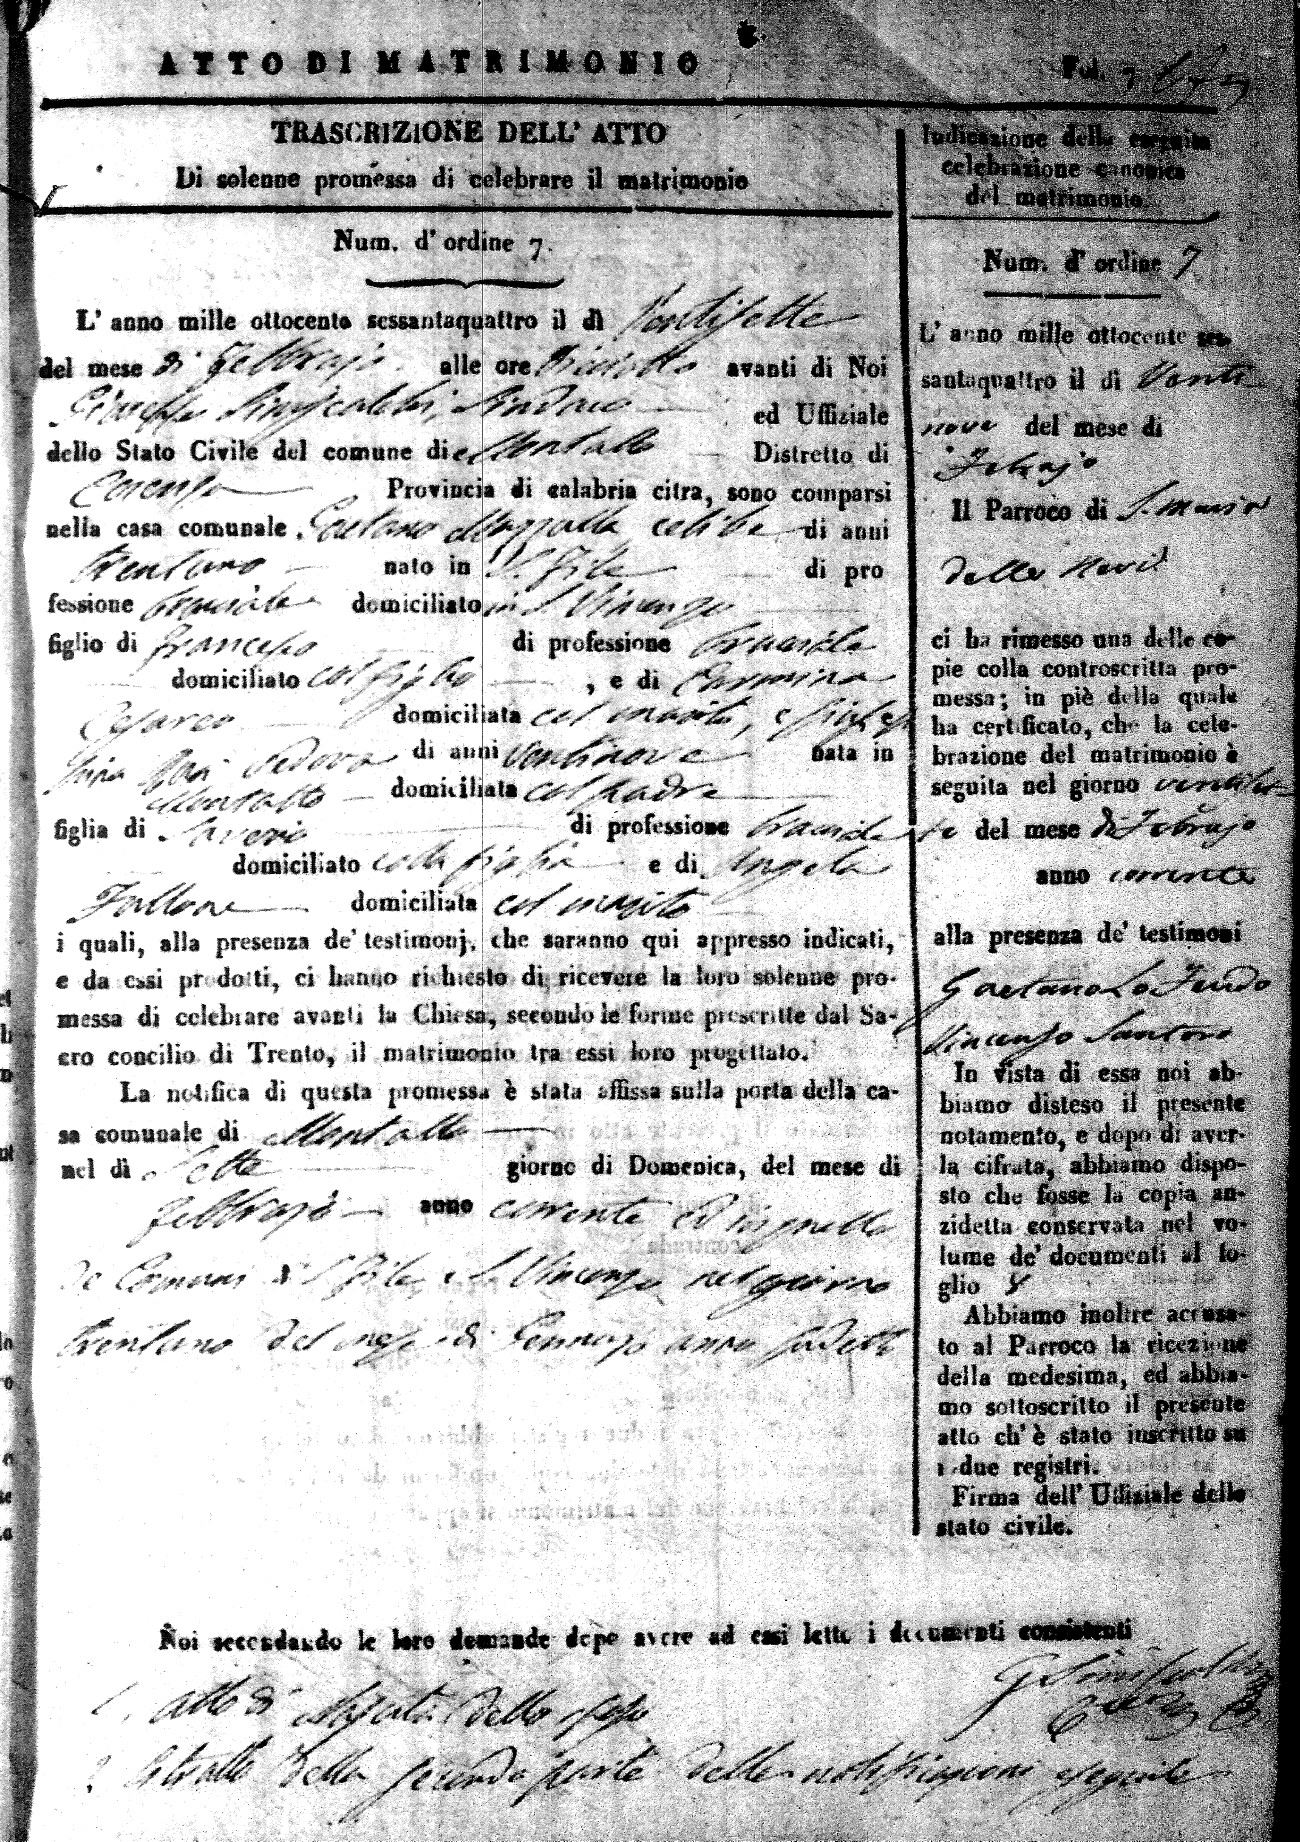 ATTO DI MATRIMONIO
Fol. 7
TRASCRIZIONE DELL' ATTO
Di solenne promessa di celebrare il matrimonio
Num. d' ordine 7.
L' anno mille ottocento sessantaquattro il dì Ventisette
del mese di Febbrajo alle ore avanti di Noi
Giuseppe Siniscalchi, Sindaco ed Uffiziale
dello Stato Civile del comune di Montalto Distretto di
Cosenza Provincia di calabria citra, sono comparsi
nella casa comunale Gaetano celibe di anni
trentuno nato in S. Fili di pro
fessione bracciale domiciliato in S. Vincenzo
figlio di Francesco di professione bracciale
domiciliato col figlio, e di Carmina
Cesareo domiciliata col marito, e
di anni ventinove nata in
Montalto domiciliata col padre
figlia di Saverio di professione bracciale
domiciliato colla figlia e di Angela
Fallone domiciliata col marito
i quali, alla presenza de' testimonj, che saranno qui appresso indicati,
e da essi prodotti, ci hanno richiesto di ricevere la loro solenne pro-
messa di celebrare avanti la Chiesa, secondo le forme prescritte dal Sa-
cro concilio di Trento, il matrimonio tra essi loro progettato.
La notifica di questa promessa è stata affissa sulla porta della ca-
sa comunale di Montalto
nel dì Sette giorno di Domenica, del mese di
Febbrajo anno corrente ed in quelle
de Comuni di S. Fili e S. Vincenzo nel giorno
trentuno del mese di Gennajo anno sudetto
Indicazione della eseguita
celebrazione canonica
del matrimonio.
Num. d' ordine 7
L' anno mille ottocento ses-
santaquattro il di Venti
nove del mese di
Febrajo
Il Parroco di S. Maria
della Neve
ci ha rimesso una delle co-
pie colla controscritta pro-
messa; in piè della quale
ha certificato, che la cele-
brazione del matrimonio è
seguita nel giorno
del mese di Febrajo
anno corrente
alla presenza de' testimoni
Gaetano Lo Feudo
Vincenzo Santoro
In vista di essa noi ab-
biamo disteso il presente
notamento, e dopo di aver-
la cifrata, abbiamo dispo-
sto che fosse la copia an-
zidetta conservata nel vo-
lume de' documenti al fo-
glio
Abbiamo inoltre accusa-
to al Parroco la ricezione
della medesima, ed abbia-
mo sottoscritto il presente
atto ch' è stato inscritto su
i due registri.
Firma dell' Uffiziale dello
stato civile.
Noi secondando le loro domande dopo avere ad essi letto i documenti consistenti
1. Atto di nascita dello sposo
2. Estratto della seconda parte delle notificazioni eseguite